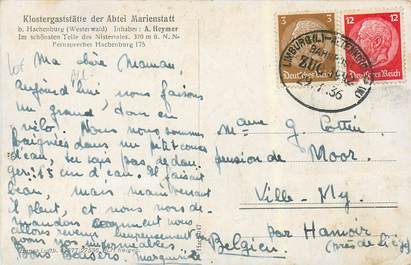 Klostergaststätte der Abtei Marienstatt
b. Hachenburg (Westerwald) Inhaber: A. Heymer
Im schönsten Teile des Nistertales. 310 m ü. N.N.
Fernsprecher Hachenburg 175
3
Deutsches Reich
12
Deutsches Reich
LIMBURG (L)-ALTENKIRCHEN
BAHNPOST
ZUG
36
Ma chère Maman,
Aujourd'hui nous faisons
un grand tour en
vélo. Nous nous sommes
baignées dans un petit cours
d'eau, tu sais pas de dan
ger: 15 cm d'eau. Il faisait
beau, mais maintenant
il pleut, et nous nous de-
mandons comment nous
allons revenir
nos imperméables.
Bons baisers. Marguerite
Mme G Cottin
pension de Moor
Ville-My
par Hamoir
Belgien (près de Liège)